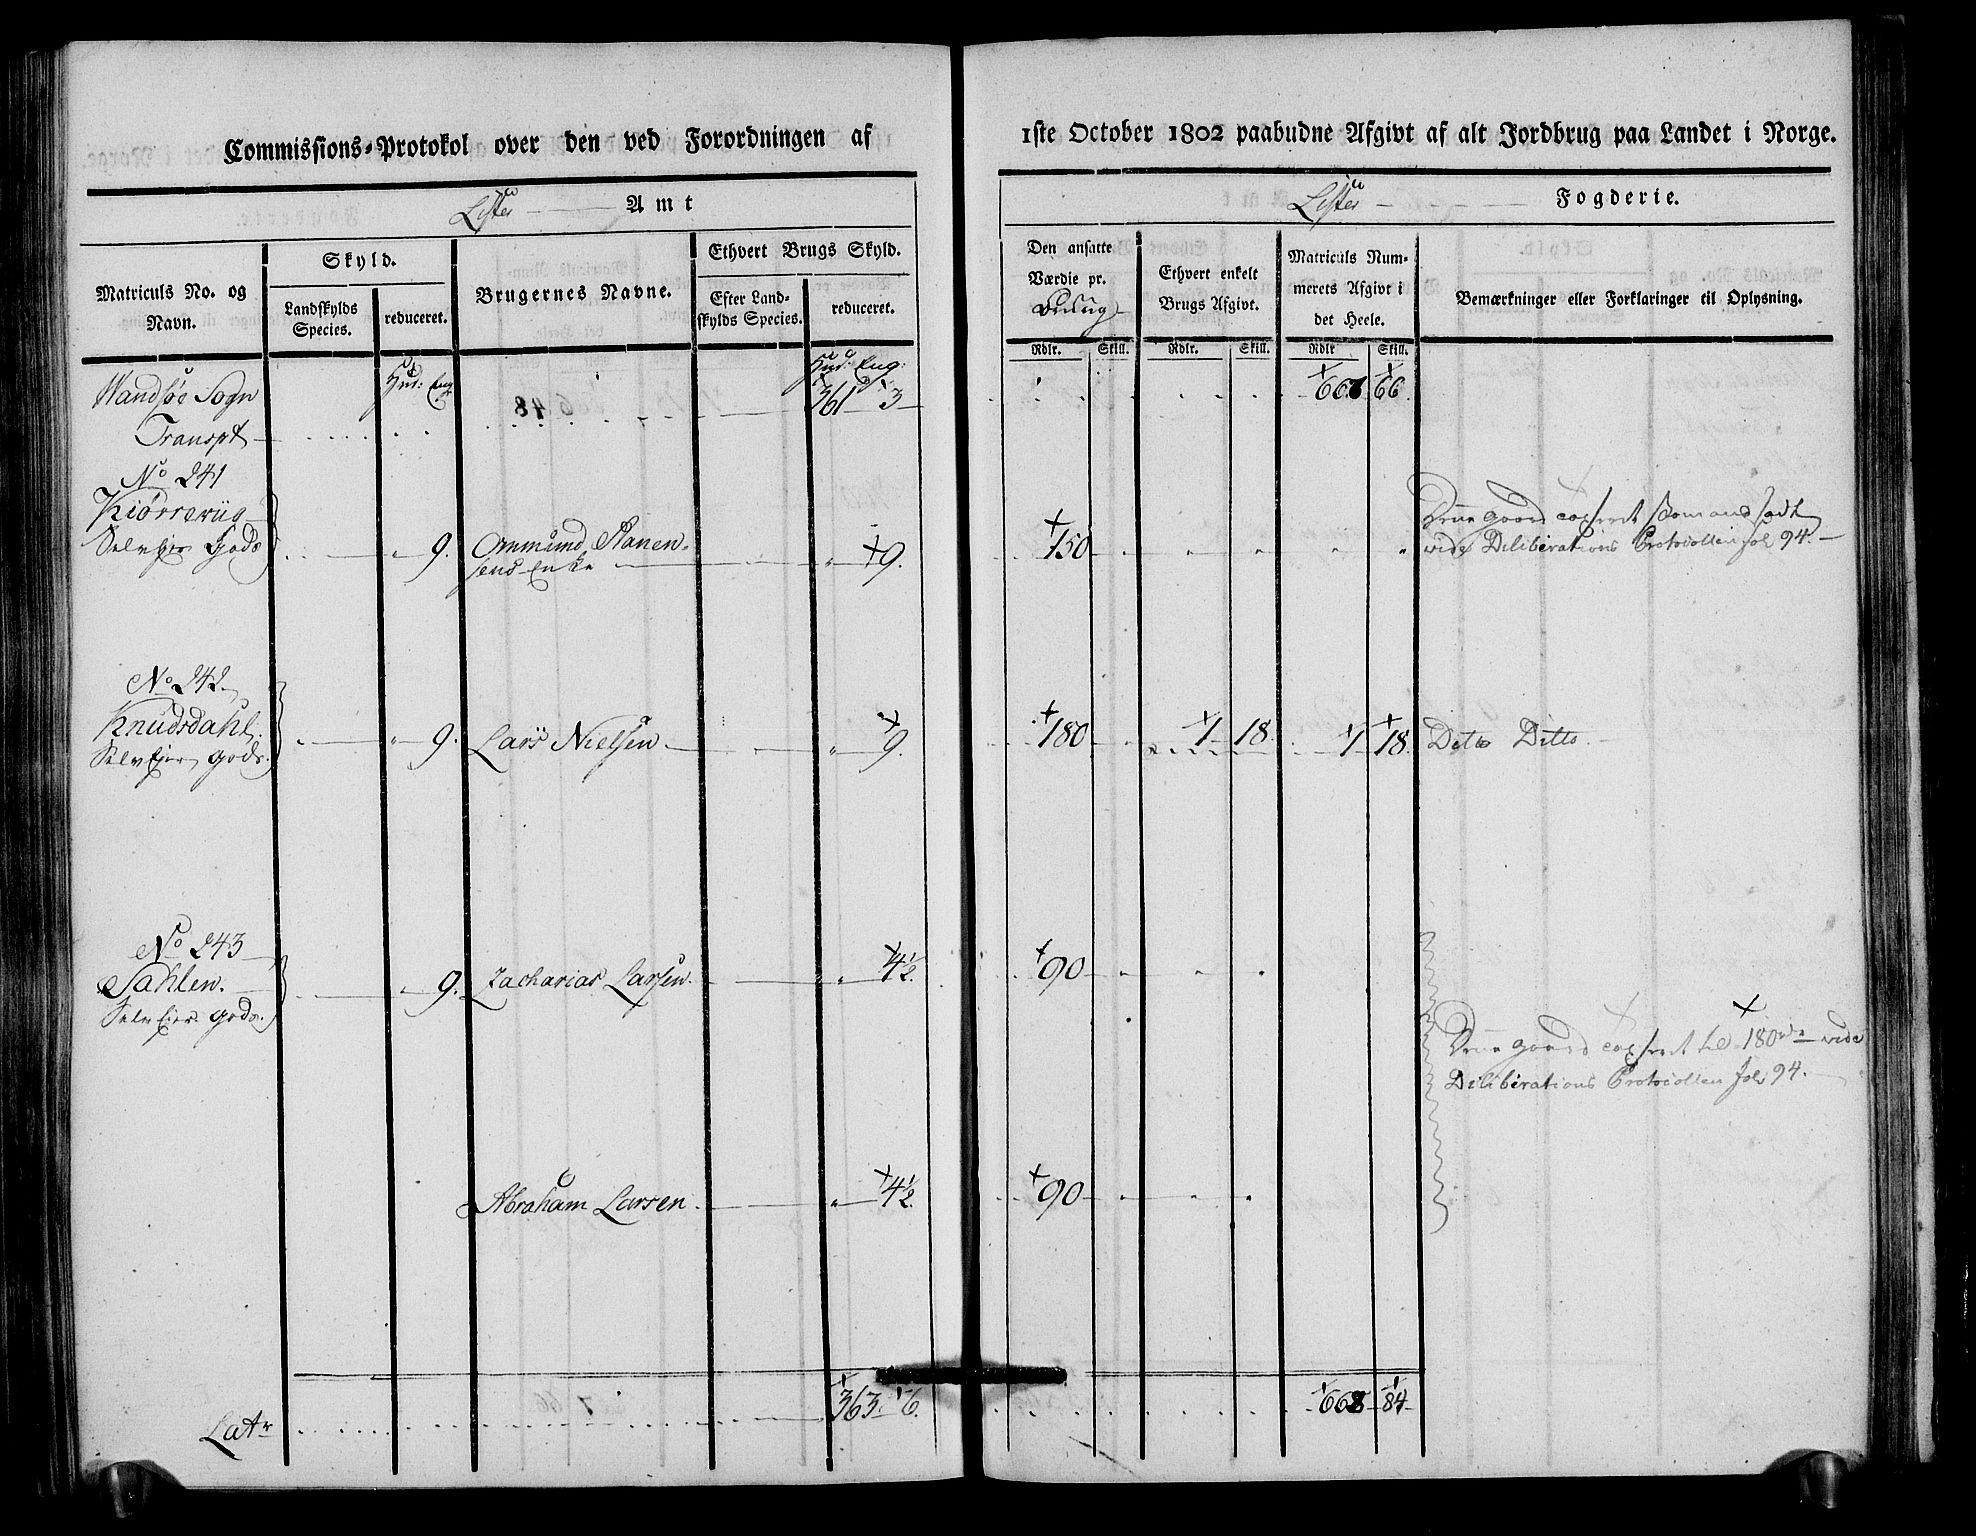 Commissions-Protokol over den ved Forordningen af
Lister Amt
Matriculs No. og Navn.
Skyld.
Landskylds Species.
reduceret.
Brugernes Navne.
Ethvert Brugs Skyld.
Efter Landskylds Species.
reduceret.
Hud: Eng
Hud: Eng:
Wandsøe Sogn
Transpt 361 3
No 241
Kiørrewiig
Selvejer Gods 9. Ommund Stanen-
sens Enke 9.
No 242
Knudsdahl
Selvejer gods. 9. Lars Nielsen 9.
No 243
Sahlen. 9. Zacharias Larsen 4 1/2.
Selvejer gods.
Abraham Larsen 4 1/2.
Latr 363. 6.
1ste October 1802 paabudne Afgivt af alt Jordbrug paa Landet i Norge.
Lister Fogderie.
Den ansatte Værdie pr.
Ethvert enkelt Brugs Afgivt.
Matriculs Nummerets Afgivt i det Heele.
Bemærkninger eller Forklaringer til Oplysning.
Rdlr. Skill. Rdlr. Skill. Rdlr Skill.
66 66.
150 Denne gaard taxseret
vide Deliberations Protocollen fol 94.
180 1 18. 1 18. Ditto Ditto.
90
Denne gaard taxseret til 180 rd vide
Deliberations Protocollen fol 94.
90
668 84